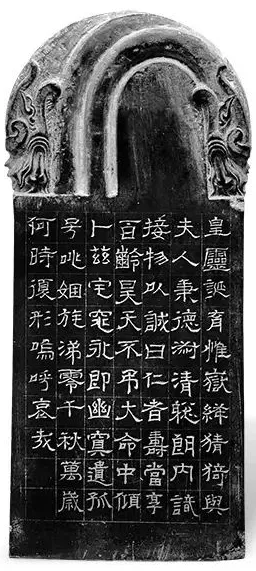 皇靈誕育惟嶽絳精猗與
夫人秉德淑清聡朗內識
接物以誠曰仁者壽當享
百齡昊天不弔大命中傾
卜茲宅窀永即幽冥遺孤
号咷姻族涕零千秋萬歲
何時復形嗚呼哀哉